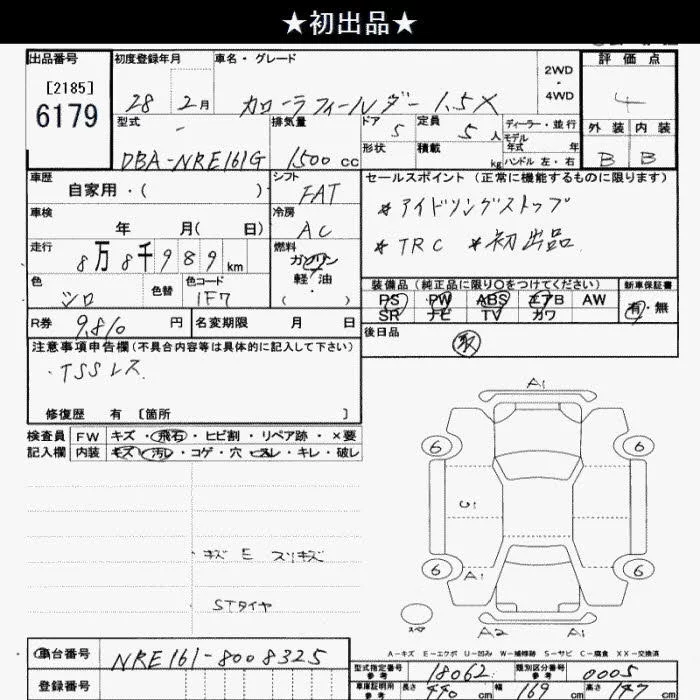 ★初出品★
出品番号 初度登録年月 車名・グレード 2WD・4WD 評価点
[2185]
6179 28 2月 カローラフィールダー 1.5X 4
型式 排気量 ドア 定員 ディーラー・並行 外装 内装
5 5人 モデル年式 年
形状 積載 kg ハンドル 左・右
DBA-NRE161G 1500cc B B
車歴 シフト セールスポイント(正常に機能するものに限ります)
自家用・( ) FAT *アイドリングストップ
車検 冷房
年 月( 日) AC *TRC *初出品
走行 燃料
8万8千989km ガソリン
軽・油
装備品(純正品に限り○をつけてください) 新車保証書
色 色替 色コード
シロ 1F7 ( )
PS PW ABS エアB AW 有・無
SR ナビ TV カワ
R券 9,810円 名変期限 月 日 後日品
注意事項申告欄(不具合内容等は具体的に記入して下さい) 取
・TSSレス
修復歴 有 [箇所 ]
検査員 FW キズ・飛石・ヒビ割・リペア跡・×要
記入欄 内装 キズ・汚レ・コゲ・穴・スレ・キレ・破レ
A1
6 6
U1
6 A1 6
スペア A2 A1
キズ E スリキズ
STタイヤ
A-キズ E-エクボ U-凹み W-補修跡 S-サビ C-腐食 XX-交換済
車台番号 NRE161-8008325
登録番号
型式指定番号 参考 18062 類別区分番号 参考 0005
車庫証明用 参考 長さ 440cm 幅 169cm 高さ 147cm